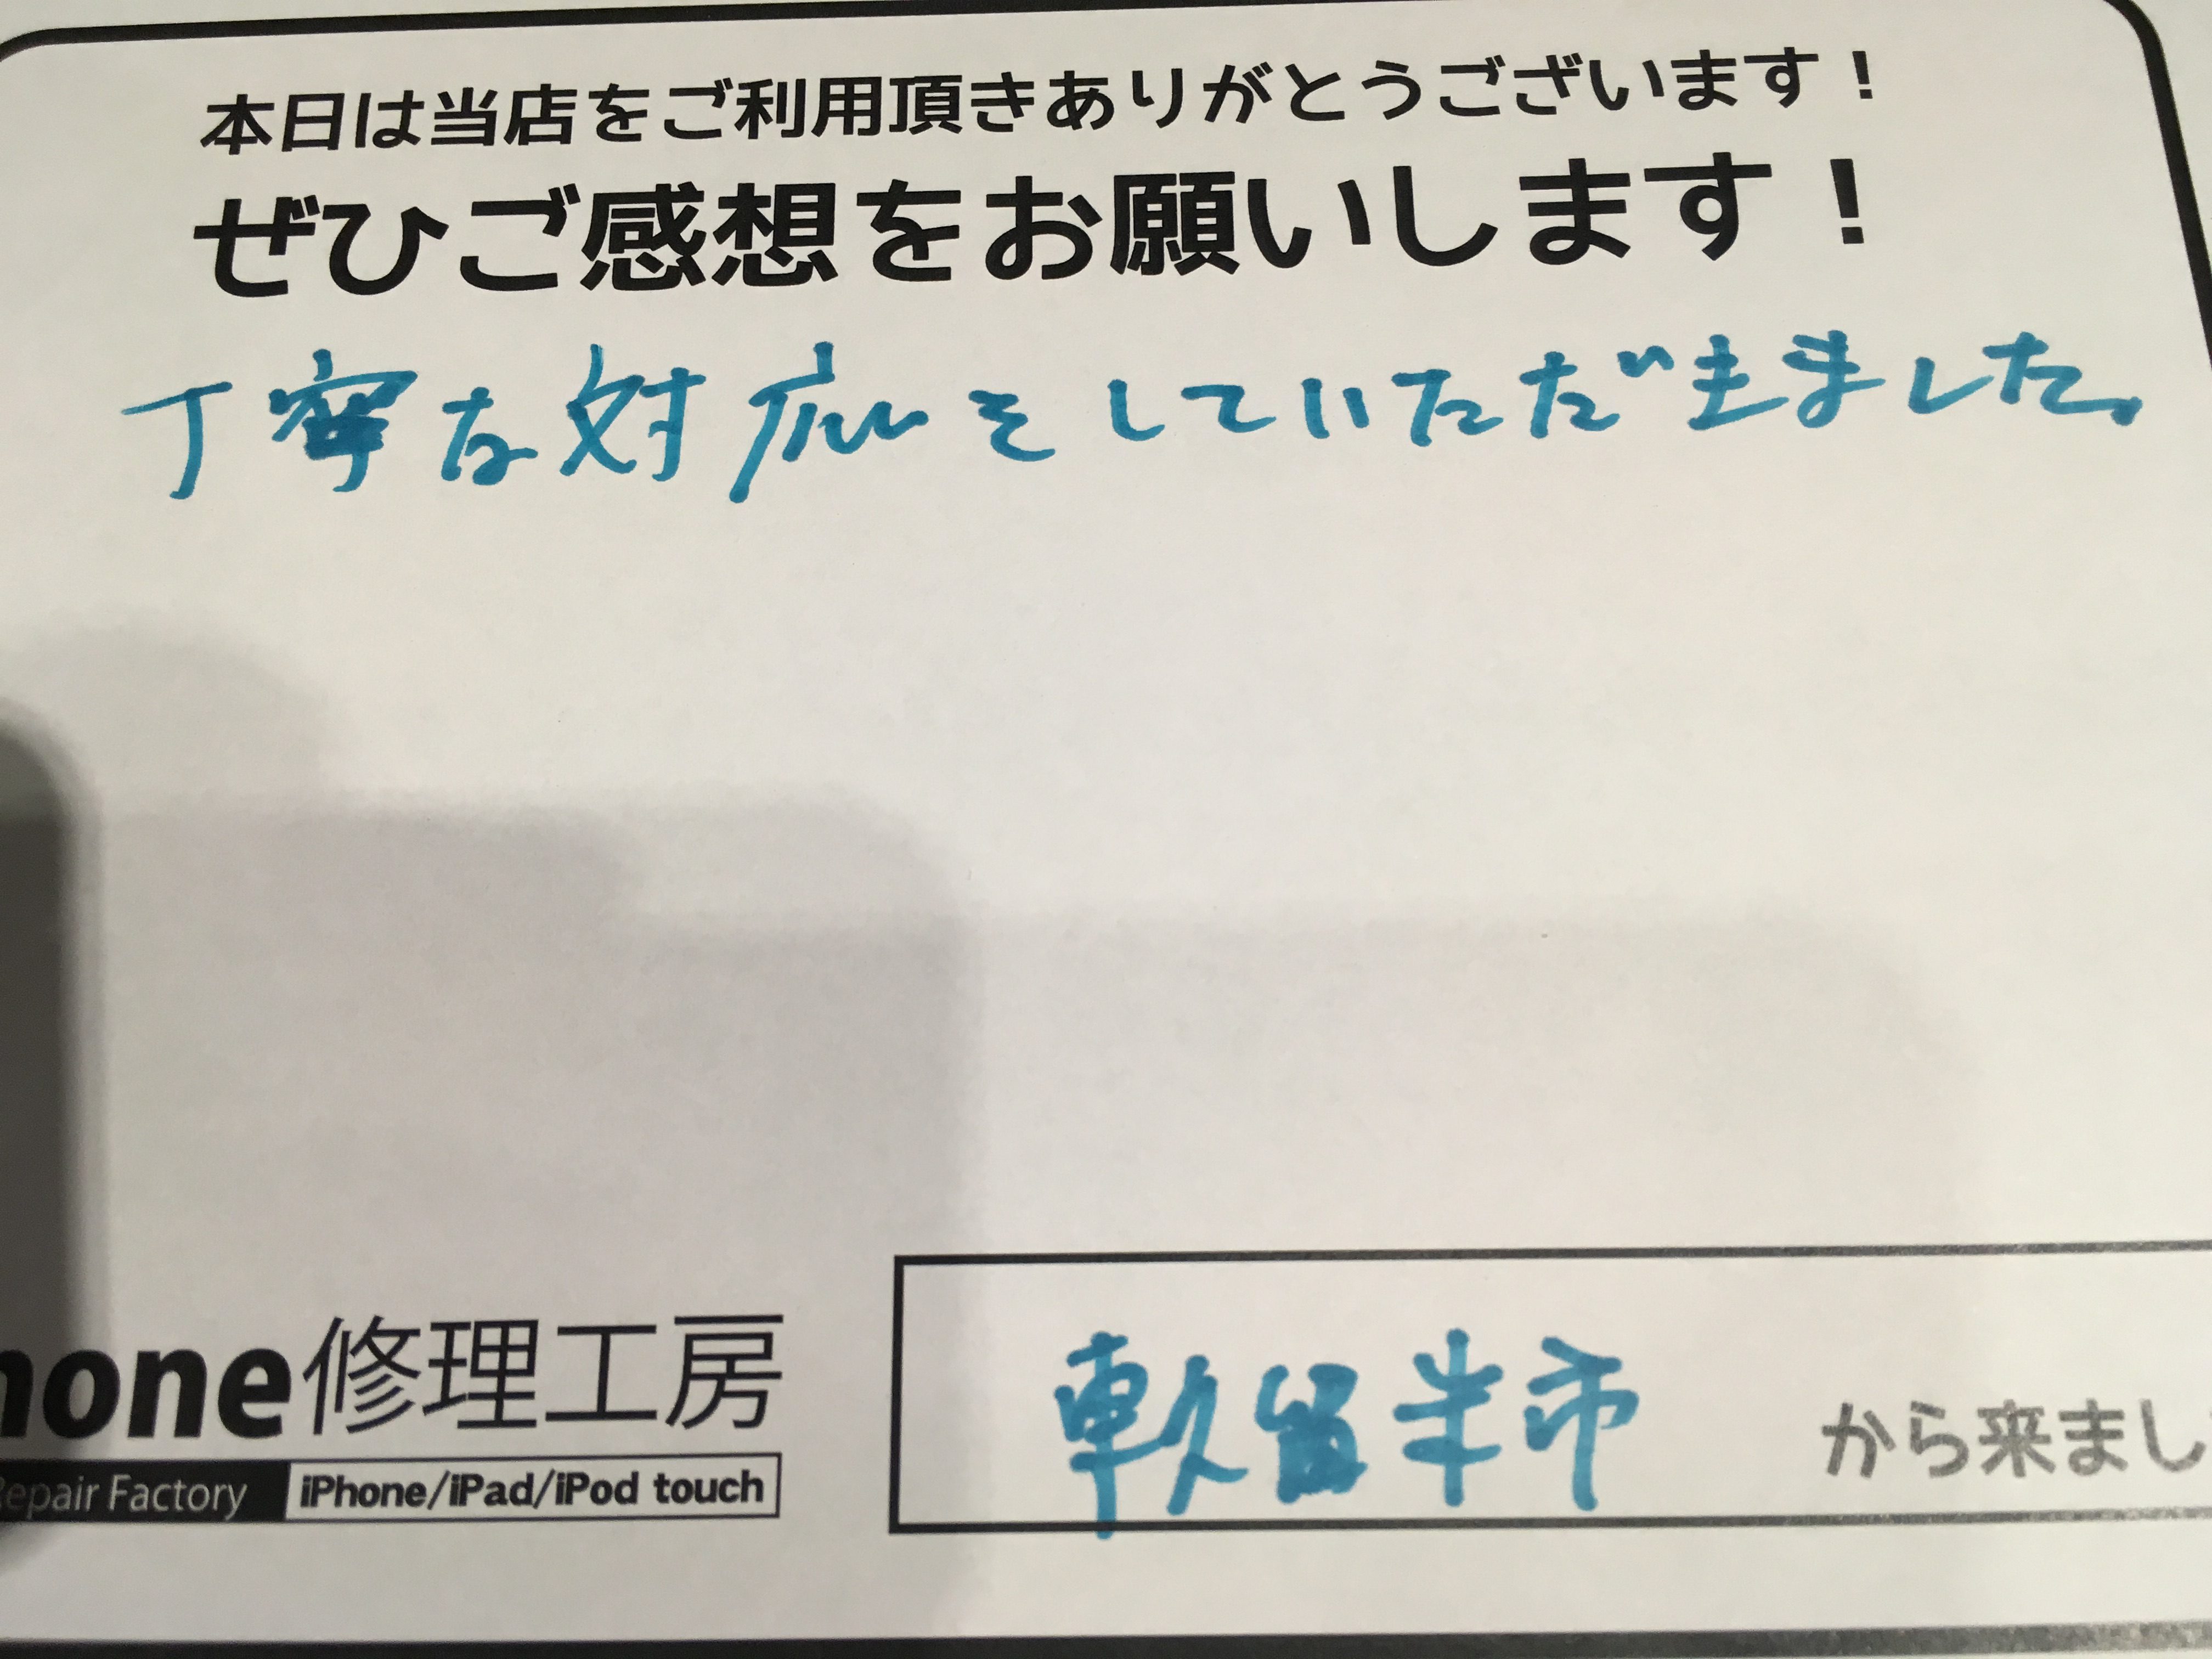 本日は当店をご利用頂きありがとうございます！
ぜひご感想をお願いします！
丁寧な対応をしていただきました。
hone修理工房
Repair Factory iPhone/iPad/iPod touch
東久留米市 から来まし